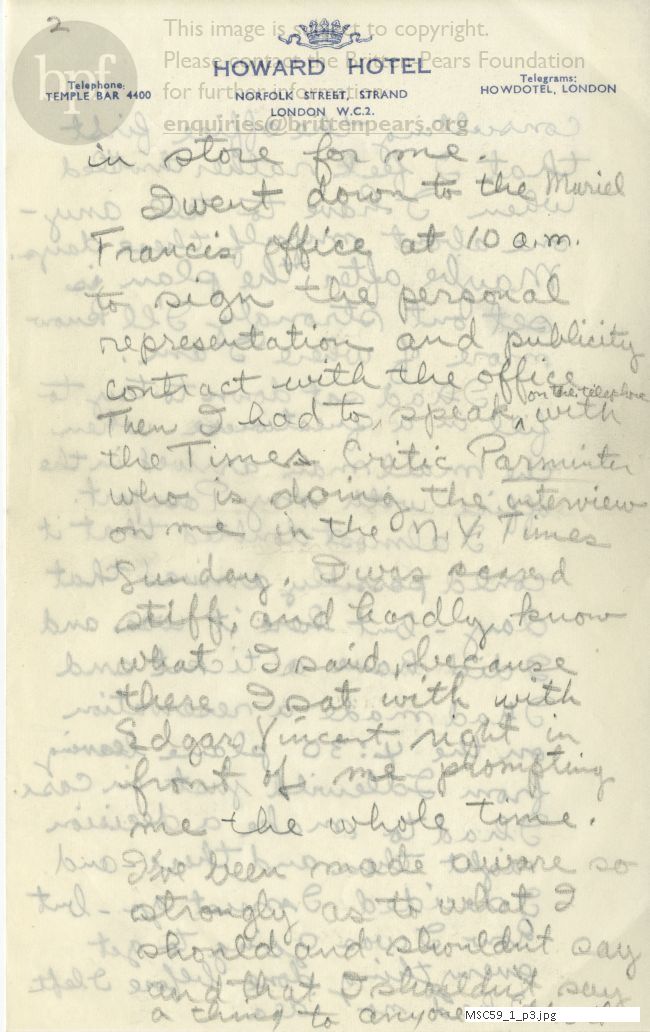 2
This image is subject to copyright.
Please contact the Britten-Pears Foundation
for further information
enquiries@brittenpears.org
bpf
HOWARD HOTEL
Telephone:
TEMPLE BAR 4400
NORFOLK STREET, STRAND
LONDON W.C.2.
Telegrams:
HOWDOTEL, LONDON
in store for me.
I went down to the Muriel
Francis office at 10 a.m.
to sign the personal
representation and publicity
contract with the office.
Then I had to speak on the telephone with
the Times Critic Parminter
who is doing the interview
on me in the N.Y. Times
Sunday. I was scared
stiff, and hardly know
what I said, because
there I sat with with
Edgar Vincent right in
front of me prompting
me the whole time.
I've been made aware so
strongly as to what I
should and shouldnt say
and that I shouldnt say
a thing to anyone
MSC59_1_p3.jpg